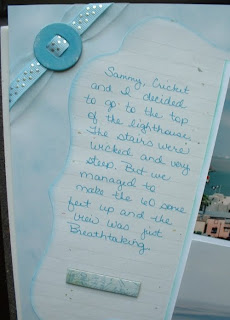 Sammy, Cricket
and I decided
to go to the top
of the lighthouse.
The stairs were
wicked and very
steep. But we
managed to
make the 60 some
feet up and the
view was just
Breathtaking